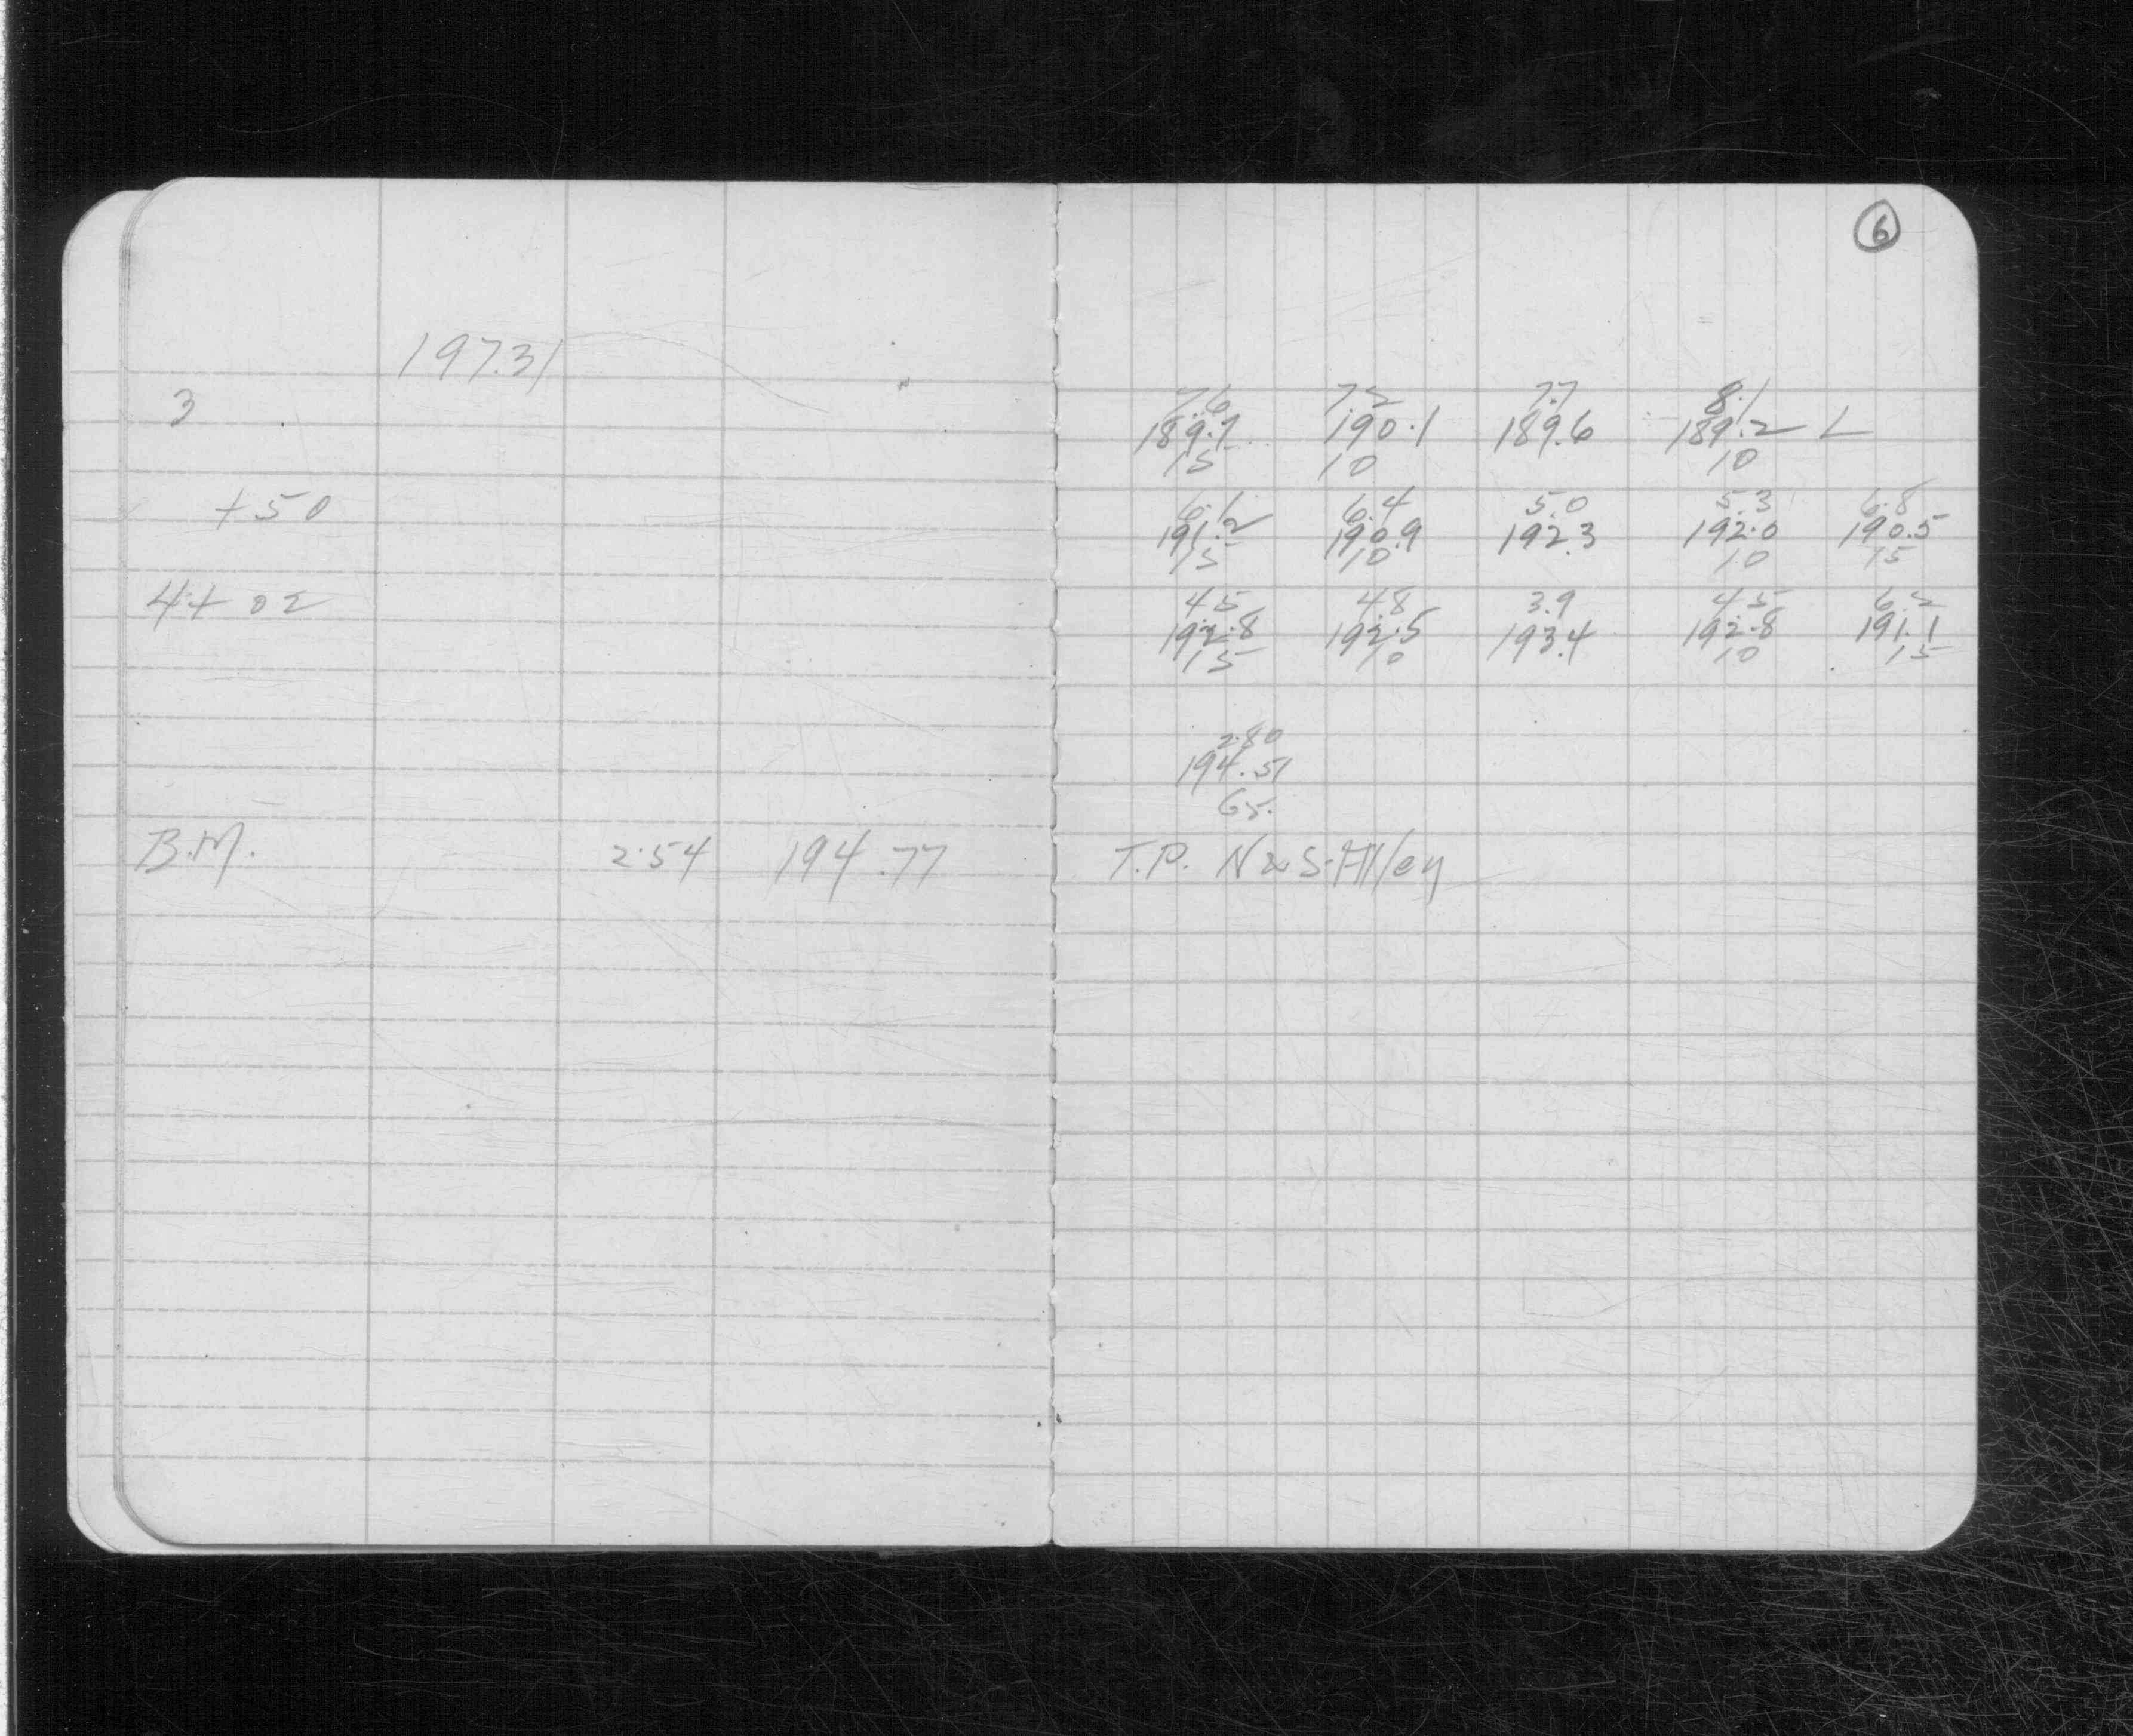 6
197.31
7.6 7.2 7.7 8.1
3 189.7 190.1 189.6 189.2 L
15 10 10
6.1 6.4 5.0 5.3 6.8
+50 191.2 190.9 192.3 192.0 190.5
15 10 10 15
4.5 4.8 3.9 4.5 6.2
4+02 192.8 192.5 193.4 192.8 191.1
15 10 10 15
2.80
194.51
65.
B.M. 2.54 194.77 T.P. N & S. Alley